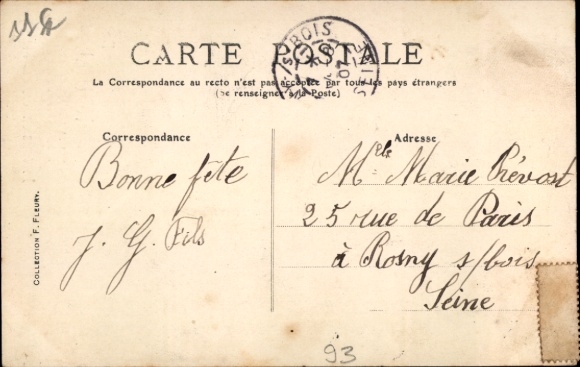 CARTE POSTALE
La Correspondance au recto n'est pas acceptée par tous les pays étrangers
(Se renseigner à la Poste)
Correspondance
Adresse
Bonne fête
J. G. Fils
Mlle Marie Prévost
25 rue de Paris
à Rosny s/bois
Seine
COLLECTION F. FLEURY.
93
S/S BOIS